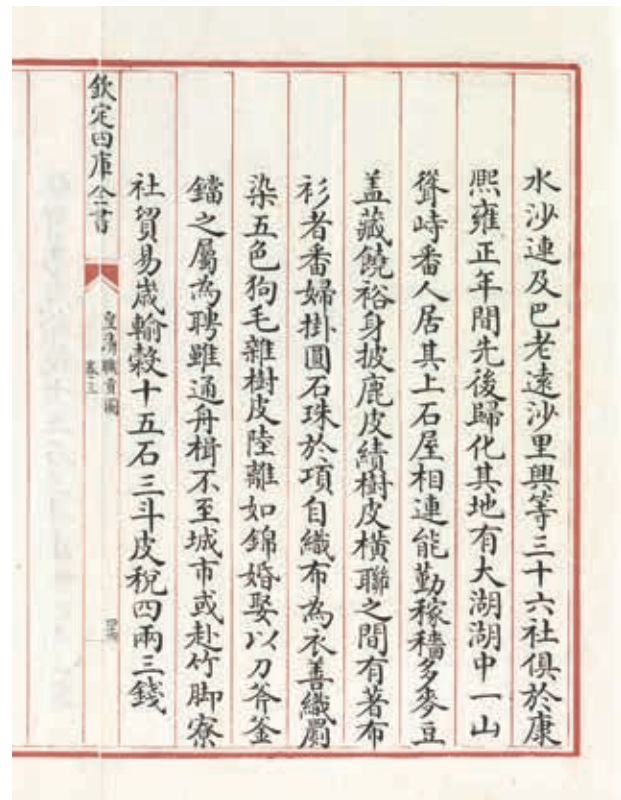 水沙連及巴老遠沙里興等三十六社俱於康
熙雍正年間先後歸化其地有大湖湖中一山
聳峙番人居其上石屋相連能勤稼穡多麥豆
盖藏饒裕身披鹿皮績樹皮横聯之間有著布
衫者番婦掛圓石珠於項自織布為衣善織罽
染五色狗毛雜樹皮陸離如錦婚娶以刀斧釜
鐺之屬為聘雖通舟楫不至城市或赴竹脚寮
社貿易嵗輸榖十五石三斗皮稅四兩三錢
欽定四庫全書
皇清職貢圖
卷三